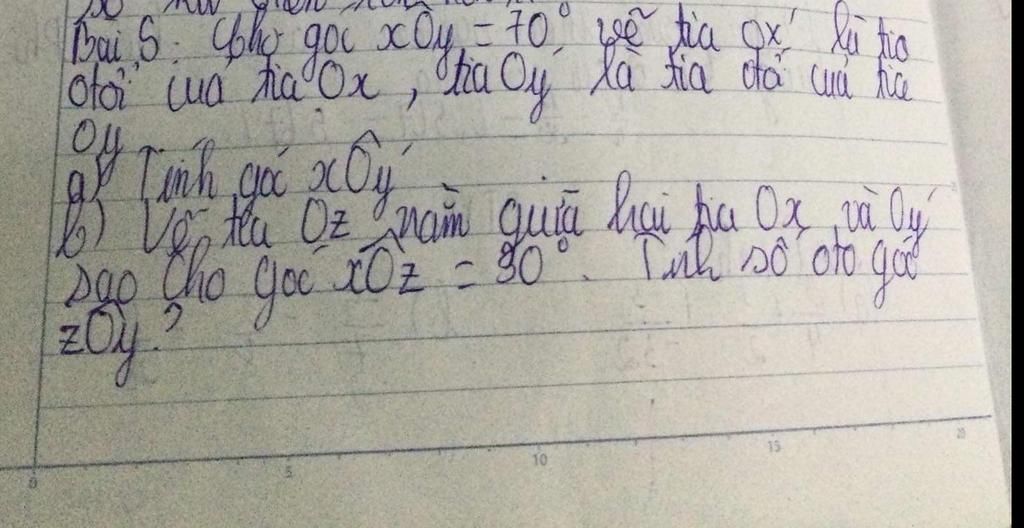 Bài 5: Cho góc xOy = 70° vẽ tia Ox' là tia
đối của tia Ox, tia Oy' là tia đối của tia
Oy
a) Tính góc xÔy'
b) Vẽ tia Oz nằm giữa hai tia Ox và Oy'
sao cho góc xÔz = 30°. Tính số đo góc
zOy'?
0 5 10 15 20